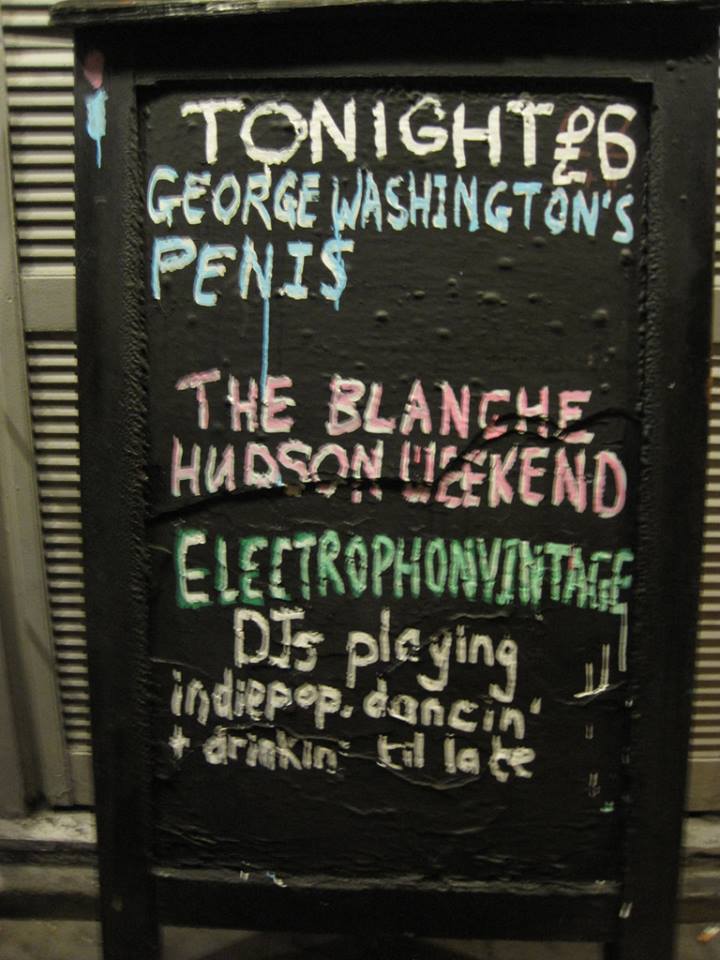 TONIGHT £6
GEORGE WASHINGTON'S
PENIS
THE BLANCHE
HUDSON WEEKEND
ELECTROPHONVINTAGE
DJs playing
indiepop. dancin'
+ drinkin' til late